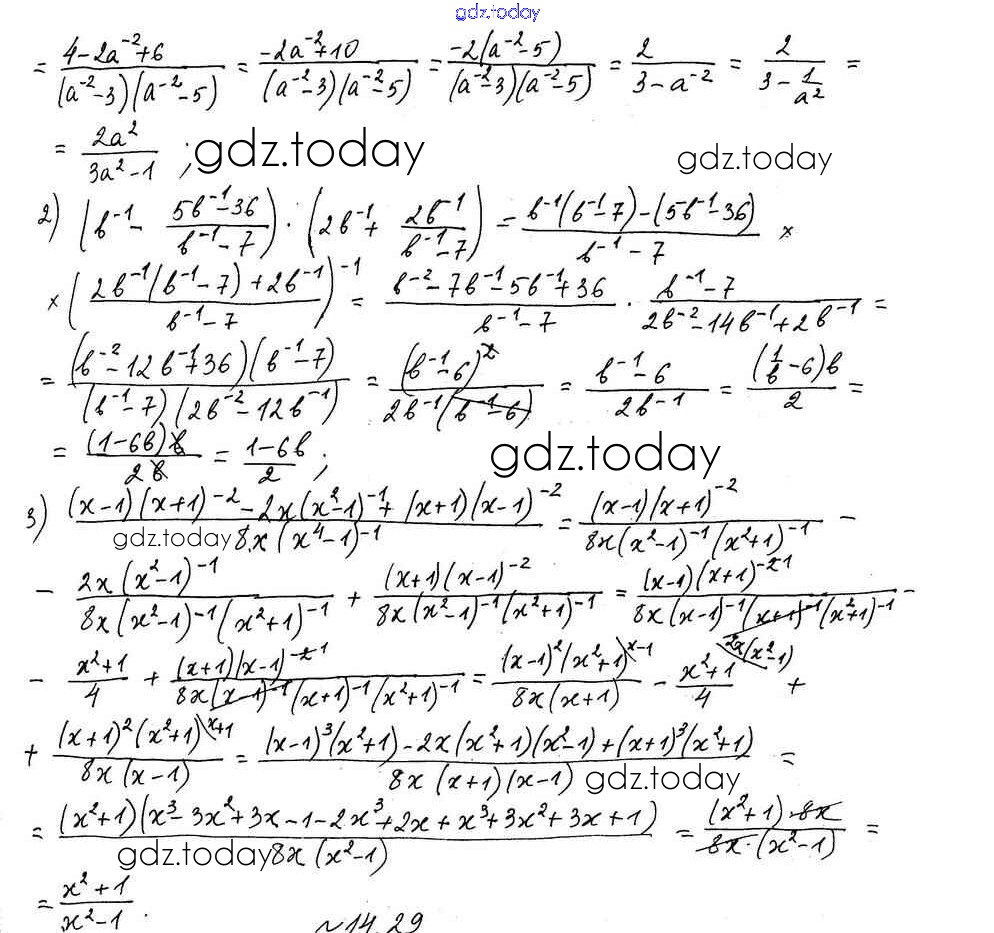 gdz.today
= (4-2a⁻²+6)/((a⁻²-3)(a⁻²-5)) = (-2a⁻²+10)/((a⁻²-3)(a⁻²-5)) = (-2(a⁻²-5))/((a⁻²-3)(a⁻²-5)) = 2/(3-a⁻²) = 2/(3-1/a²) =
= 2a²/(3a²-1) ; gdz.today gdz.today
2) (b⁻¹ - (5b⁻¹-36)/(b⁻¹-7)) · (2b⁻¹ + 2b⁻¹/(b⁻¹-7)) = (b⁻¹(b⁻¹-7)-(5b⁻¹-36))/(b⁻¹-7) ×
× ((2b⁻¹(b⁻¹-7)+2b⁻¹)/(b⁻¹-7))⁻¹ = (b⁻²-7b⁻¹-5b⁻¹+36)/(b⁻¹-7) · (b⁻¹-7)/(2b⁻²-14b⁻¹+2b⁻¹) =
= ((b⁻²-12b⁻¹+36)(b⁻¹-7))/((b⁻¹-7)(2b⁻²-12b⁻¹)) = (b⁻¹-6)²/(2b⁻¹(b⁻¹-6)) = (b⁻¹-6)/(2b⁻¹) = ((1/b-6)b)/2 =
= ((1-6b)b)/(2b) = (1-6b)/2 ; gdz.today
3) ((x-1)(x+1)⁻²-2x(x²-1)⁻¹+(x+1)(x-1)⁻²)/(8x(x⁴-1)⁻¹) = ((x-1)(x+1)⁻²)/(8x(x²-1)⁻¹(x²+1)⁻¹) -
gdz.today
- (2x(x²-1)⁻¹)/(8x(x²-1)⁻¹(x²+1)⁻¹) + ((x+1)(x-1)⁻²)/(8x(x²-1)⁻¹(x²+1)⁻¹) = ((x-1)(x+1)⁻²⁻¹)/(8x(x-1)⁻¹(x+1)⁻¹(x²+1)⁻¹) -
- (x²+1)/4 + ((x+1)(x-1)⁻²⁻¹)/(8x(x-1)⁻¹(x+1)⁻¹(x²+1)⁻¹) = ((x-1)²(x²+1)\x-1)/(8x(x+1)) - (x²+1\2x(x²-1))/4 +
+ ((x+1)²(x²+1)\x+1)/(8x(x-1)) = ((x-1)³(x²+1)-2x(x²+1)(x²-1)+(x+1)³(x²+1))/(8x(x+1)(x-1)) =
gdz.today
= ((x²+1)(x³-3x²+3x-1-2x³+2x+x³+3x²+3x+1))/(8x(x²-1)) = ((x²+1)·8x)/(8x·(x²-1)) =
gdz.today
= (x²+1)/(x²-1) .
№14.29